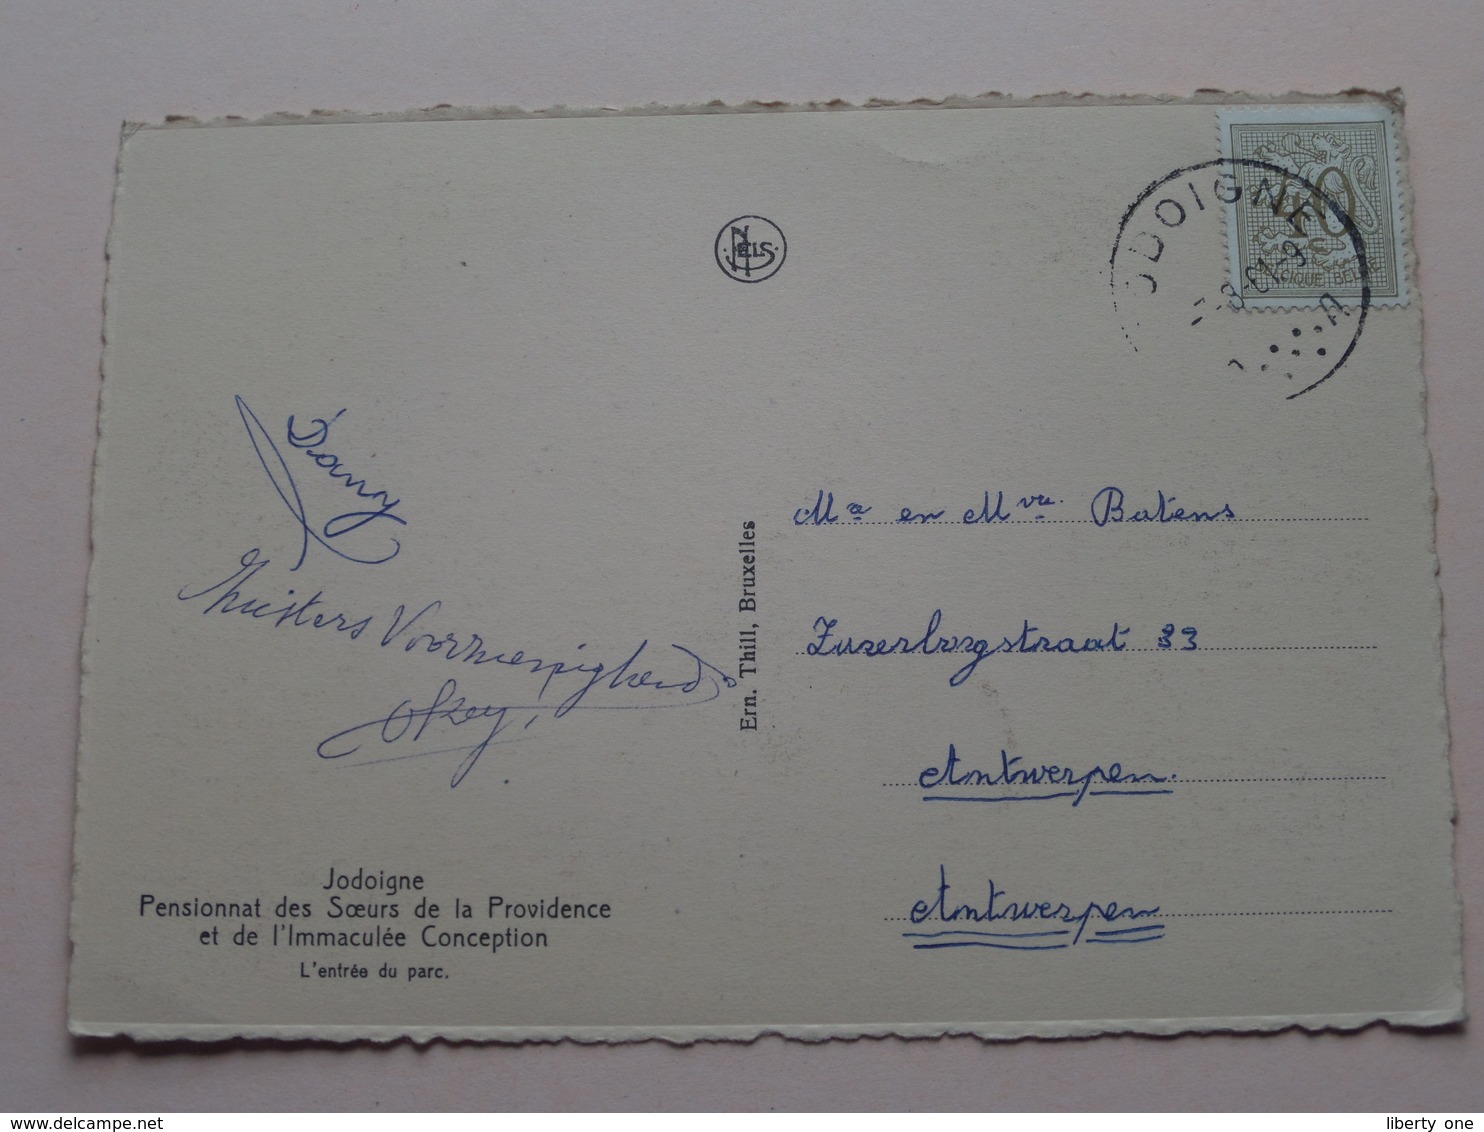 NELS
JODOIGNE
40
BELGIQUE BELGIE
Dany
Okey!
Ern. Thill, Bruxelles
Mr en Mvr. Batens
Zurenborgstraat 33
Antwerpen.
Antwerpen
Jodoigne
Pensionnat des Sœurs de la Providence
et de l'Immaculée Conception
L'entrée du parc.
liberty one
www.delcampe.net